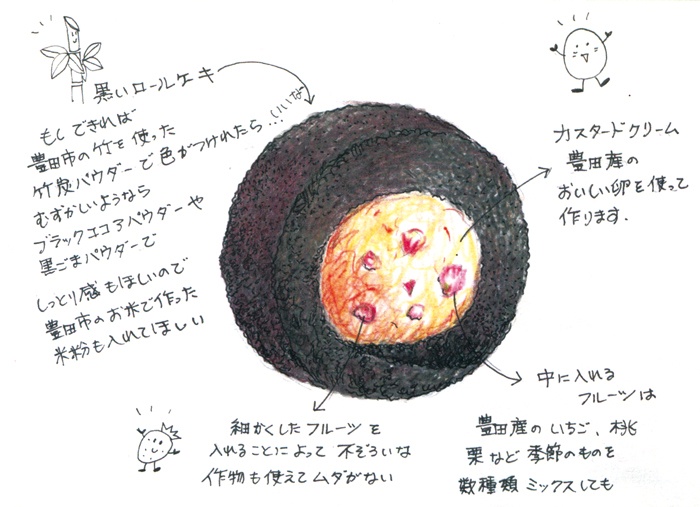 黒いロールケーキ
もしできれば
豊田市の竹を使った
竹炭パウダーで色がつけれたら…いいな
むずかしいようなら
ブラックココアパウダーや
黒ごまパウダーで
しっとり感もほしいので
豊田市のお米で作った
米粉も入れてほしい
カスタードクリーム
豊田産の
おいしい卵を使って
作ります.
細かくしたフルーツを
入れることによって不ぞろいな
作物も使えてムダがない
中に入れる
フルーツは
豊田産のいちご、桃
栗など季節のものを
数種類ミックスしても